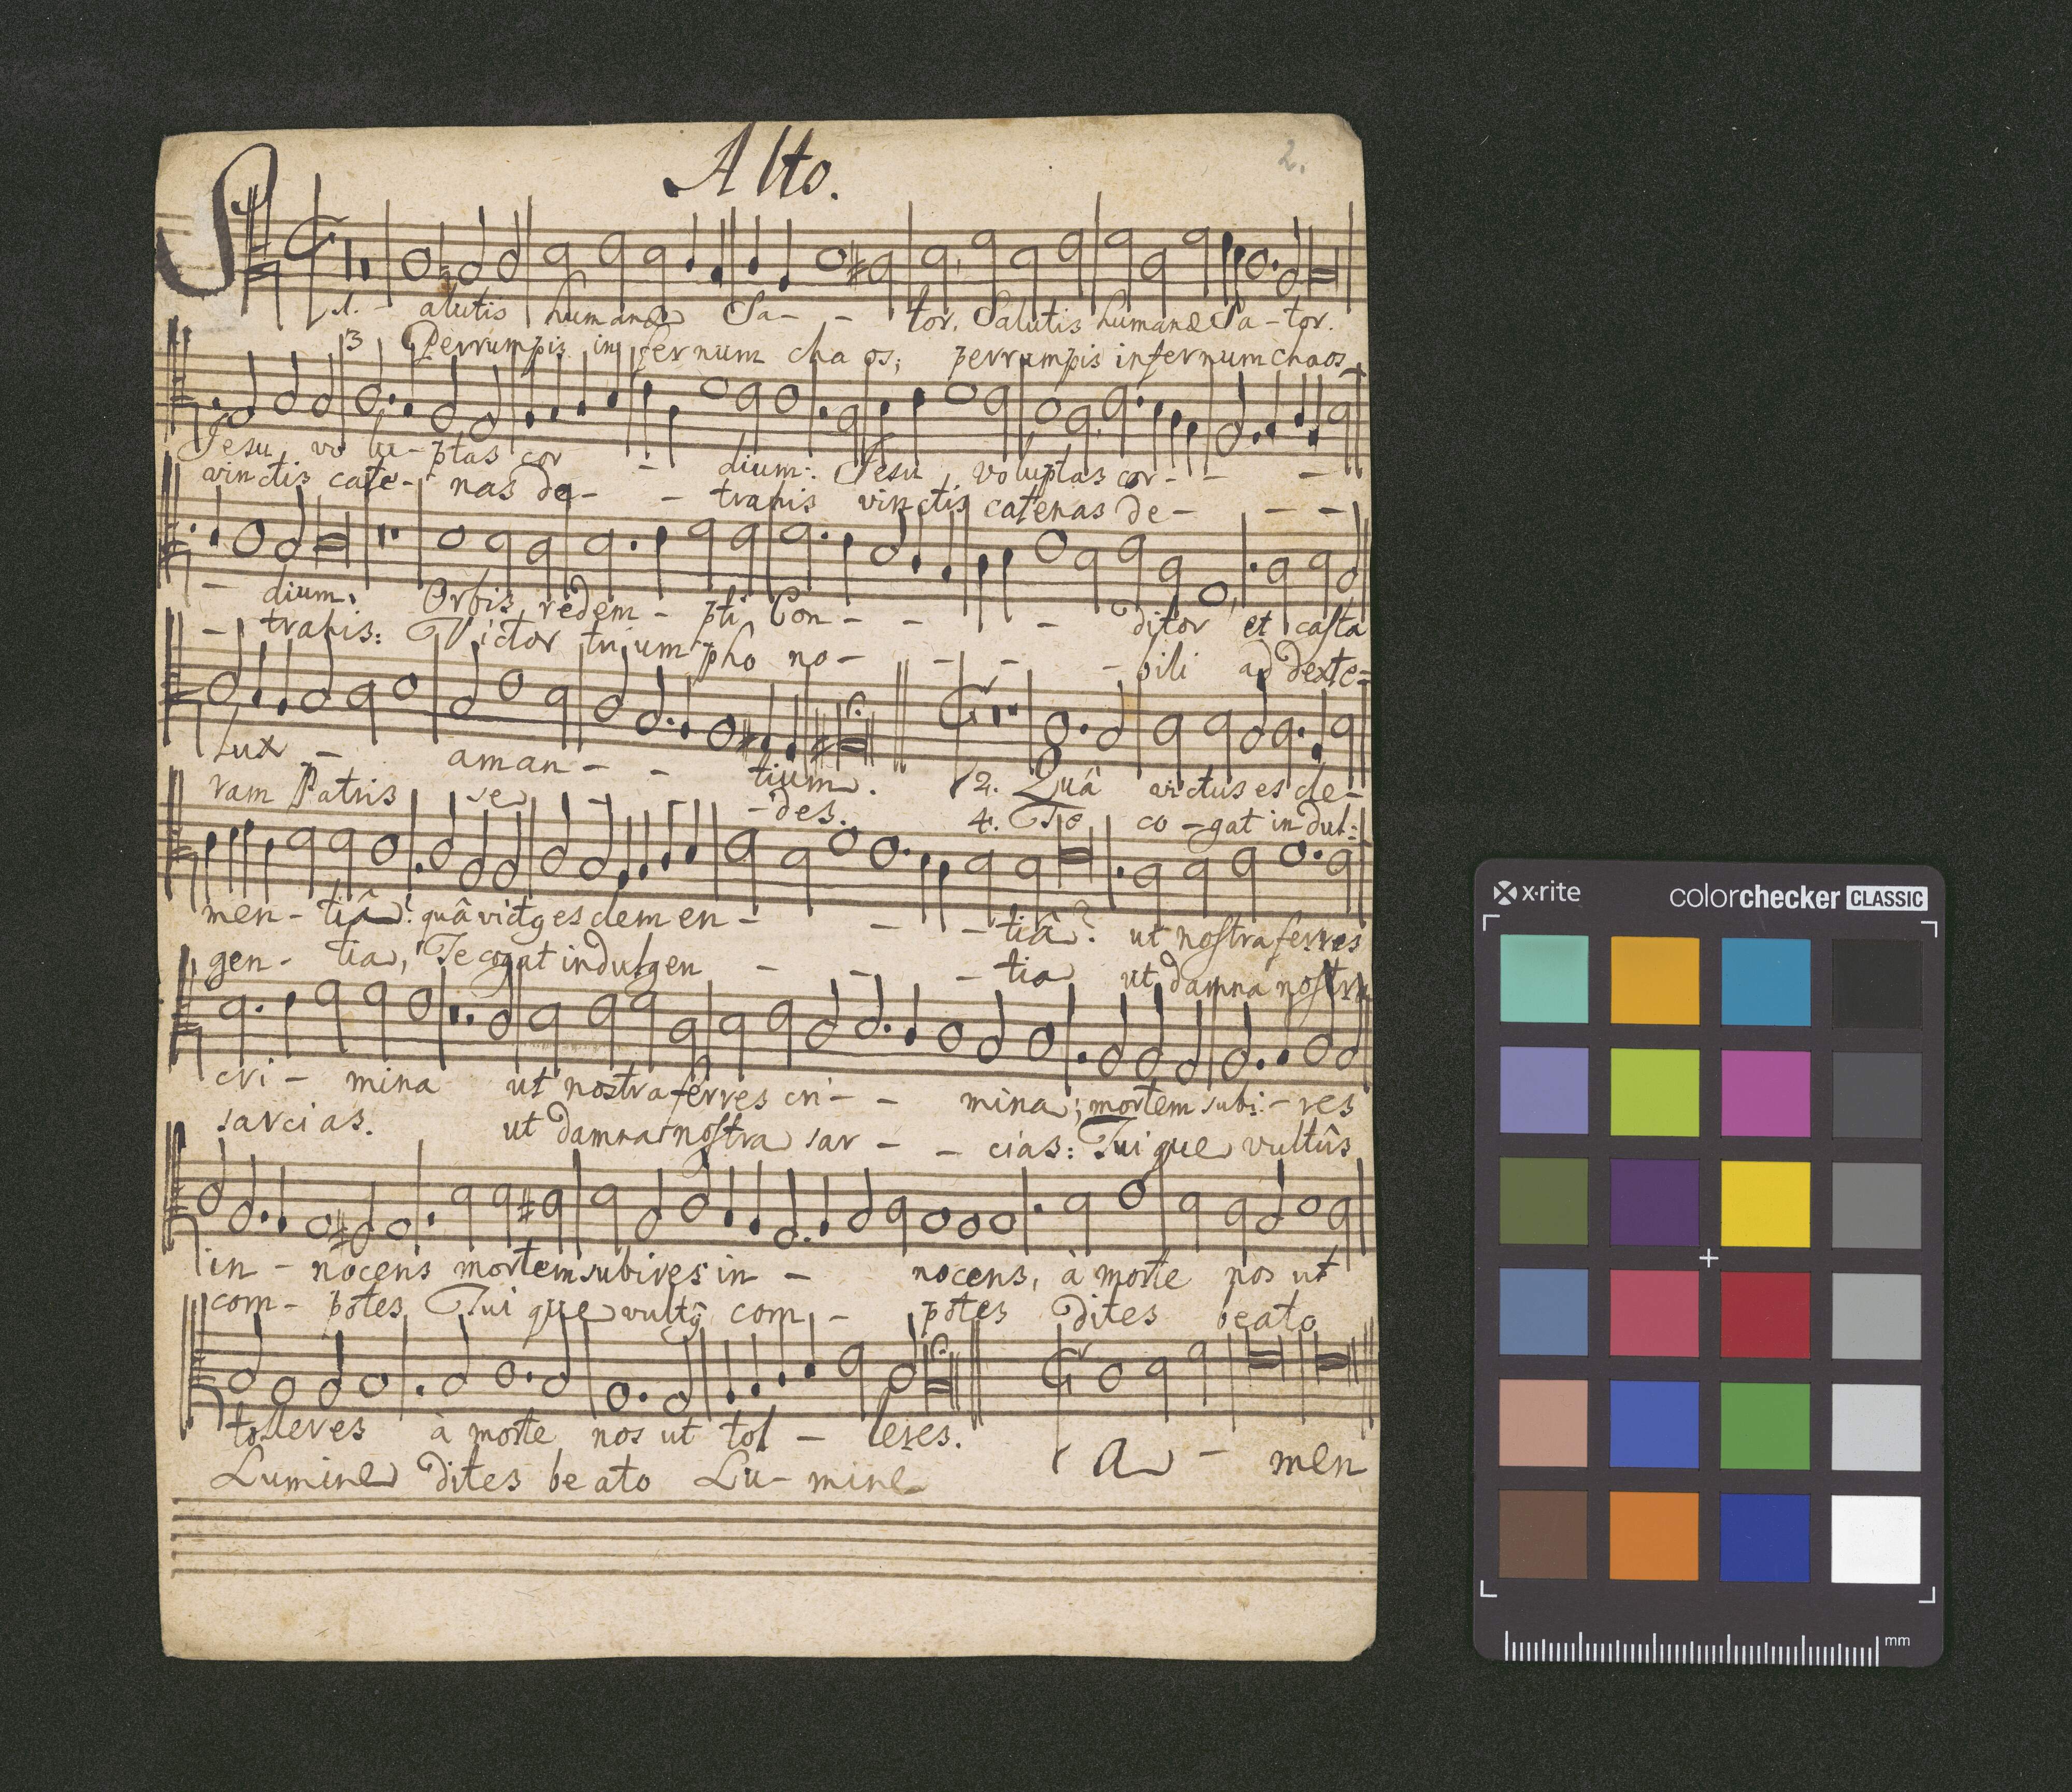 Alto.
2.
S
1. - alutis humanæ Sa - - tor. Salutis humanæ Sa - tor.
3 Perrumpis infernum chaos; perrumpis infernum chaos
Jesu voluptas cor - dium: Jesu voluptas cor - - -
vinctis cate - nas de - - trahis vinctis catenas de - - -
- dium. Orbis redem - pti Con - - - ditor et casta
- trahis: Victor triumpho no - - - - bili ad dexte=
Lux - aman - - tium. 2. Quâ victus es cle -
ram Patris se - - des. 4. Te co - gat indul=
men - tiâ? quâ victq es clemen - - - tiâ? ut nostra ferres
gen - tia, Te cogat indulgen - - - tia ut damna nostra
cri - mina ut nostra ferres cri - - mina; mortem subi - res
sarcias. ut damna nostra sar - - cias: Tuique vultûs
in - nocens mortem subires in - nocens, à morte nos ut
com - potes Tuique com - potes dites beato
tolleres à morte nos ut tol - leres. A - men
Lumine dites beato Lu - mine
x·rite colorchecker CLASSIC
mm